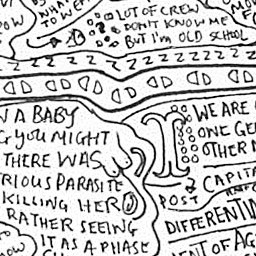 WHAT
TO WEAR
LOT OF CREW
DON'T KNOW ME
BUT I'm OLD SCHOOL
POW
MOW
Z Z Z Z Z Z Z Z Z Z Z Z
N A BABY
G YOU MIGHT
THERE WAS
RIOUS PARASITE
KILLING HERO
RATHER SEEING
IT AS A PHASE
WE ARE
ONE GE
OTHER
CAPITA
POST
DIFFERENTI
ENT OF AG